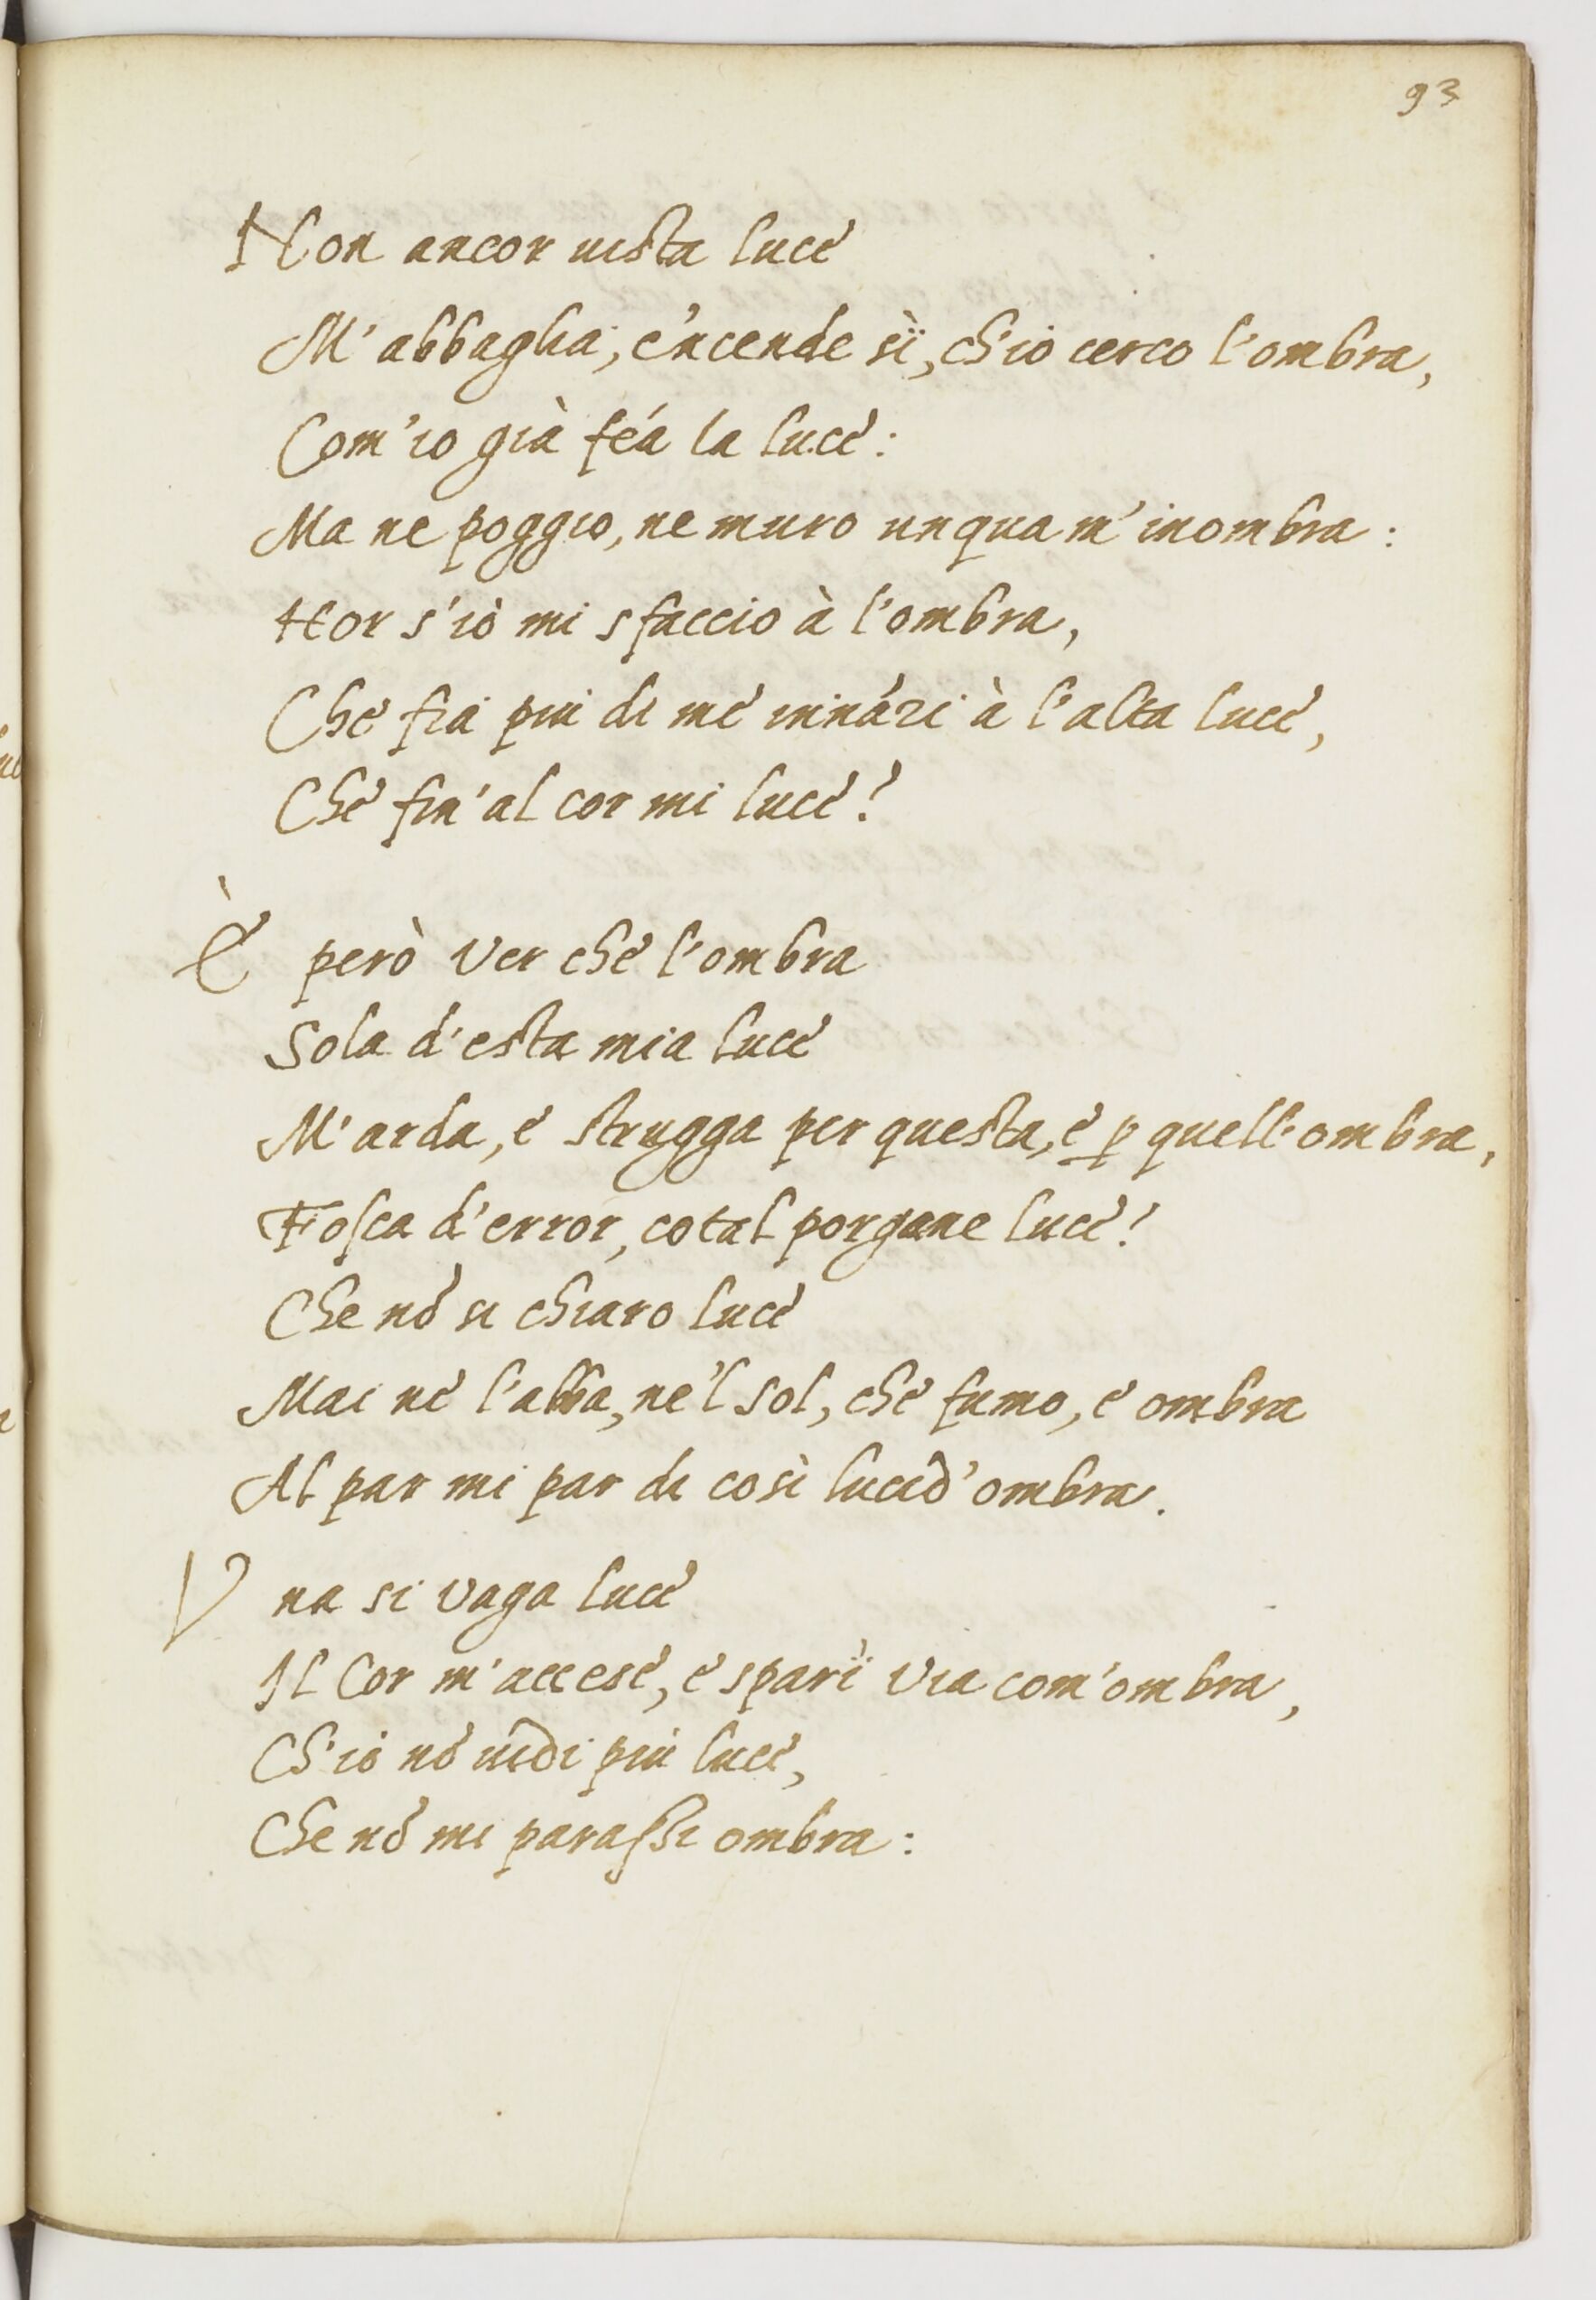 93
Non ancor uista luce
M'abbaglia, e'ncende sì, ch'io cerco l'ombra,
Com'io già féa la luce:
Ma ne poggio, ne muro unqua m'inombra:
Hor s'io mi sfaccio à l'ombra,
Che fia piu di me innázi à l'alta luce,
Che fin'al cor mi luce?
È però ver che l'ombra
Sola d'esta mia luce
M'arda, e strugga per questa, e p quell'ombra,
Fosca d'error, cotal porgane luce!
Che nō si chiaro luce
Mai ne l'alba, ne'l sol, che fumo, e ombra
Al par mi par di così lucid'ombra.
Vna si vaga luce
Il Cor m'accese, e sparì via com'ombra,
Ch'io nō uidi piu luce,
Che nō mi parassi ombra: